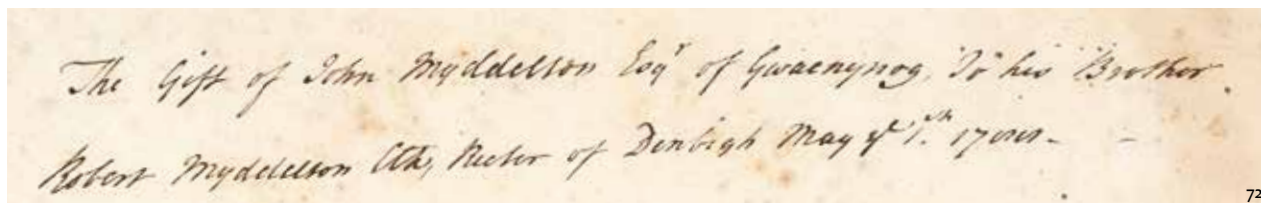 The Gift of John Myddelton Esqr of Gwaenynog, To his Brother.
Robert Myddelton Clk, Rector of Denbigh May ye 1.st
72